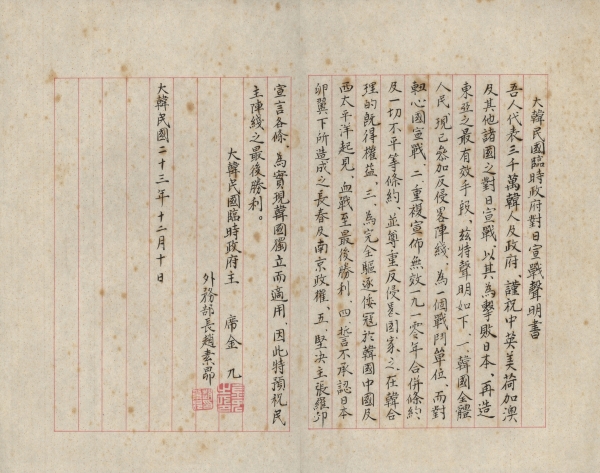 大韓民國臨時政府對日宣戰聲明書
吾人代表三千萬韓人及政府、謹祝中英美荷加澳
及其他諸國之對日宣戰、以其為擊敗日本、再造
東亞之最有效手段、玆特聲明如下、一、韓國全體
人民、現已參加反侵畧陣綫、為一個戰鬥單位、而對
軸心國宣戰、二、重複宣佈無效一九一〇年合併條約
及一切不平等條約、並尊重反侵畧國家之在韓合
理的既得權益、三、為完全驅逐倭冦於韓國中國及
西太平洋起見、血戰至最後勝利、四、誓不承認日本
卵翼下所造成之長春及南京政權、五、堅决主張羅邱
宣言各條、為實現韓國獨立而適用、因此特預祝民
主陣綫之最後勝利。
大韓民國臨時政府主席金九
外務部長趙素昻
大韓民國二十三年十二月十日